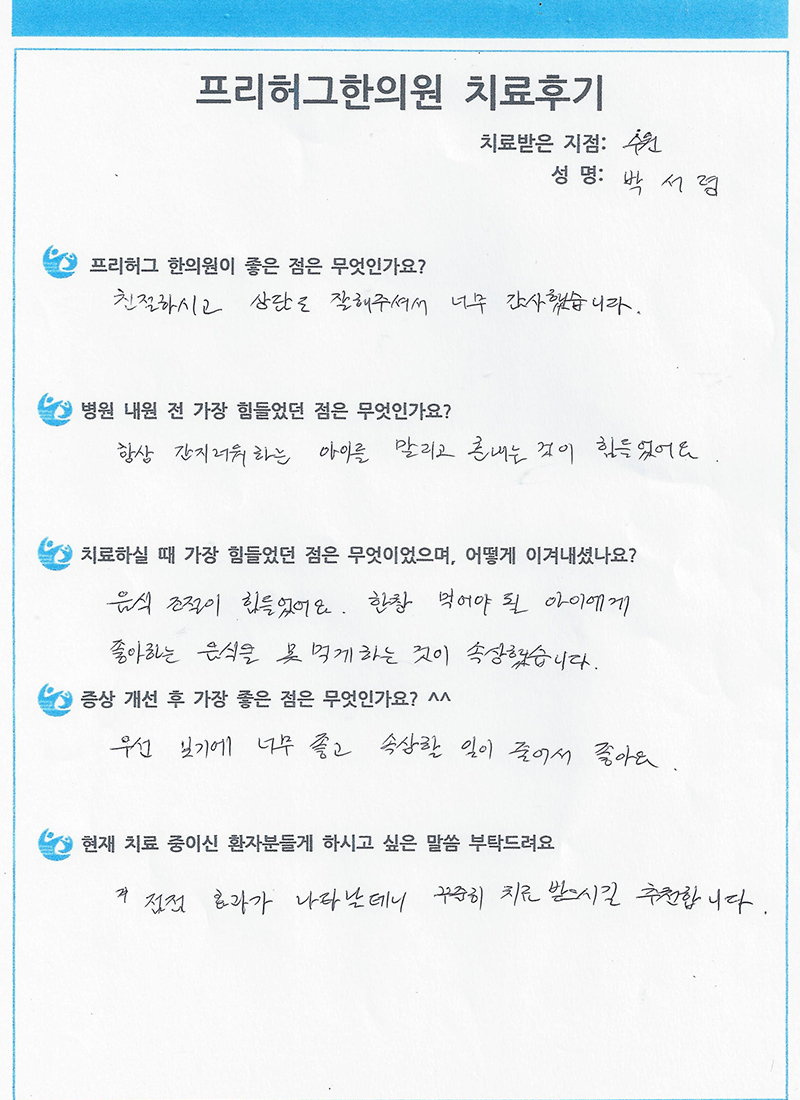 프리허그한의원 치료후기
치료받은 지점: 수원
성 명: 박서령
프리허그 한의원이 좋은 점은 무엇인가요?
친절하시고 상담도 잘해주셔서 너무 감사했습니다.
병원 내원 전 가장 힘들었던 점은 무엇인가요?
항상 간지러워하는 아이를 말리고 혼내는 것이 힘들었어요.
치료하실 때 가장 힘들었던 점은 무엇이었으며, 어떻게 이겨내셨나요?
음식 조절이 힘들었어요. 한참 먹어야 될 아이에게
좋아하는 음식을 못 먹게 하는 것이 속상했습니다.
증상 개선 후 가장 좋은 점은 무엇인가요? ^^
우선 보기에 너무 좋고 속상할 일이 줄어서 좋아요.
현재 치료 중이신 환자분들게 하시고 싶은 말씀 부탁드려요
점점 효과가 나타날테니 꾸준히 치료 받으시길 추천합니다.